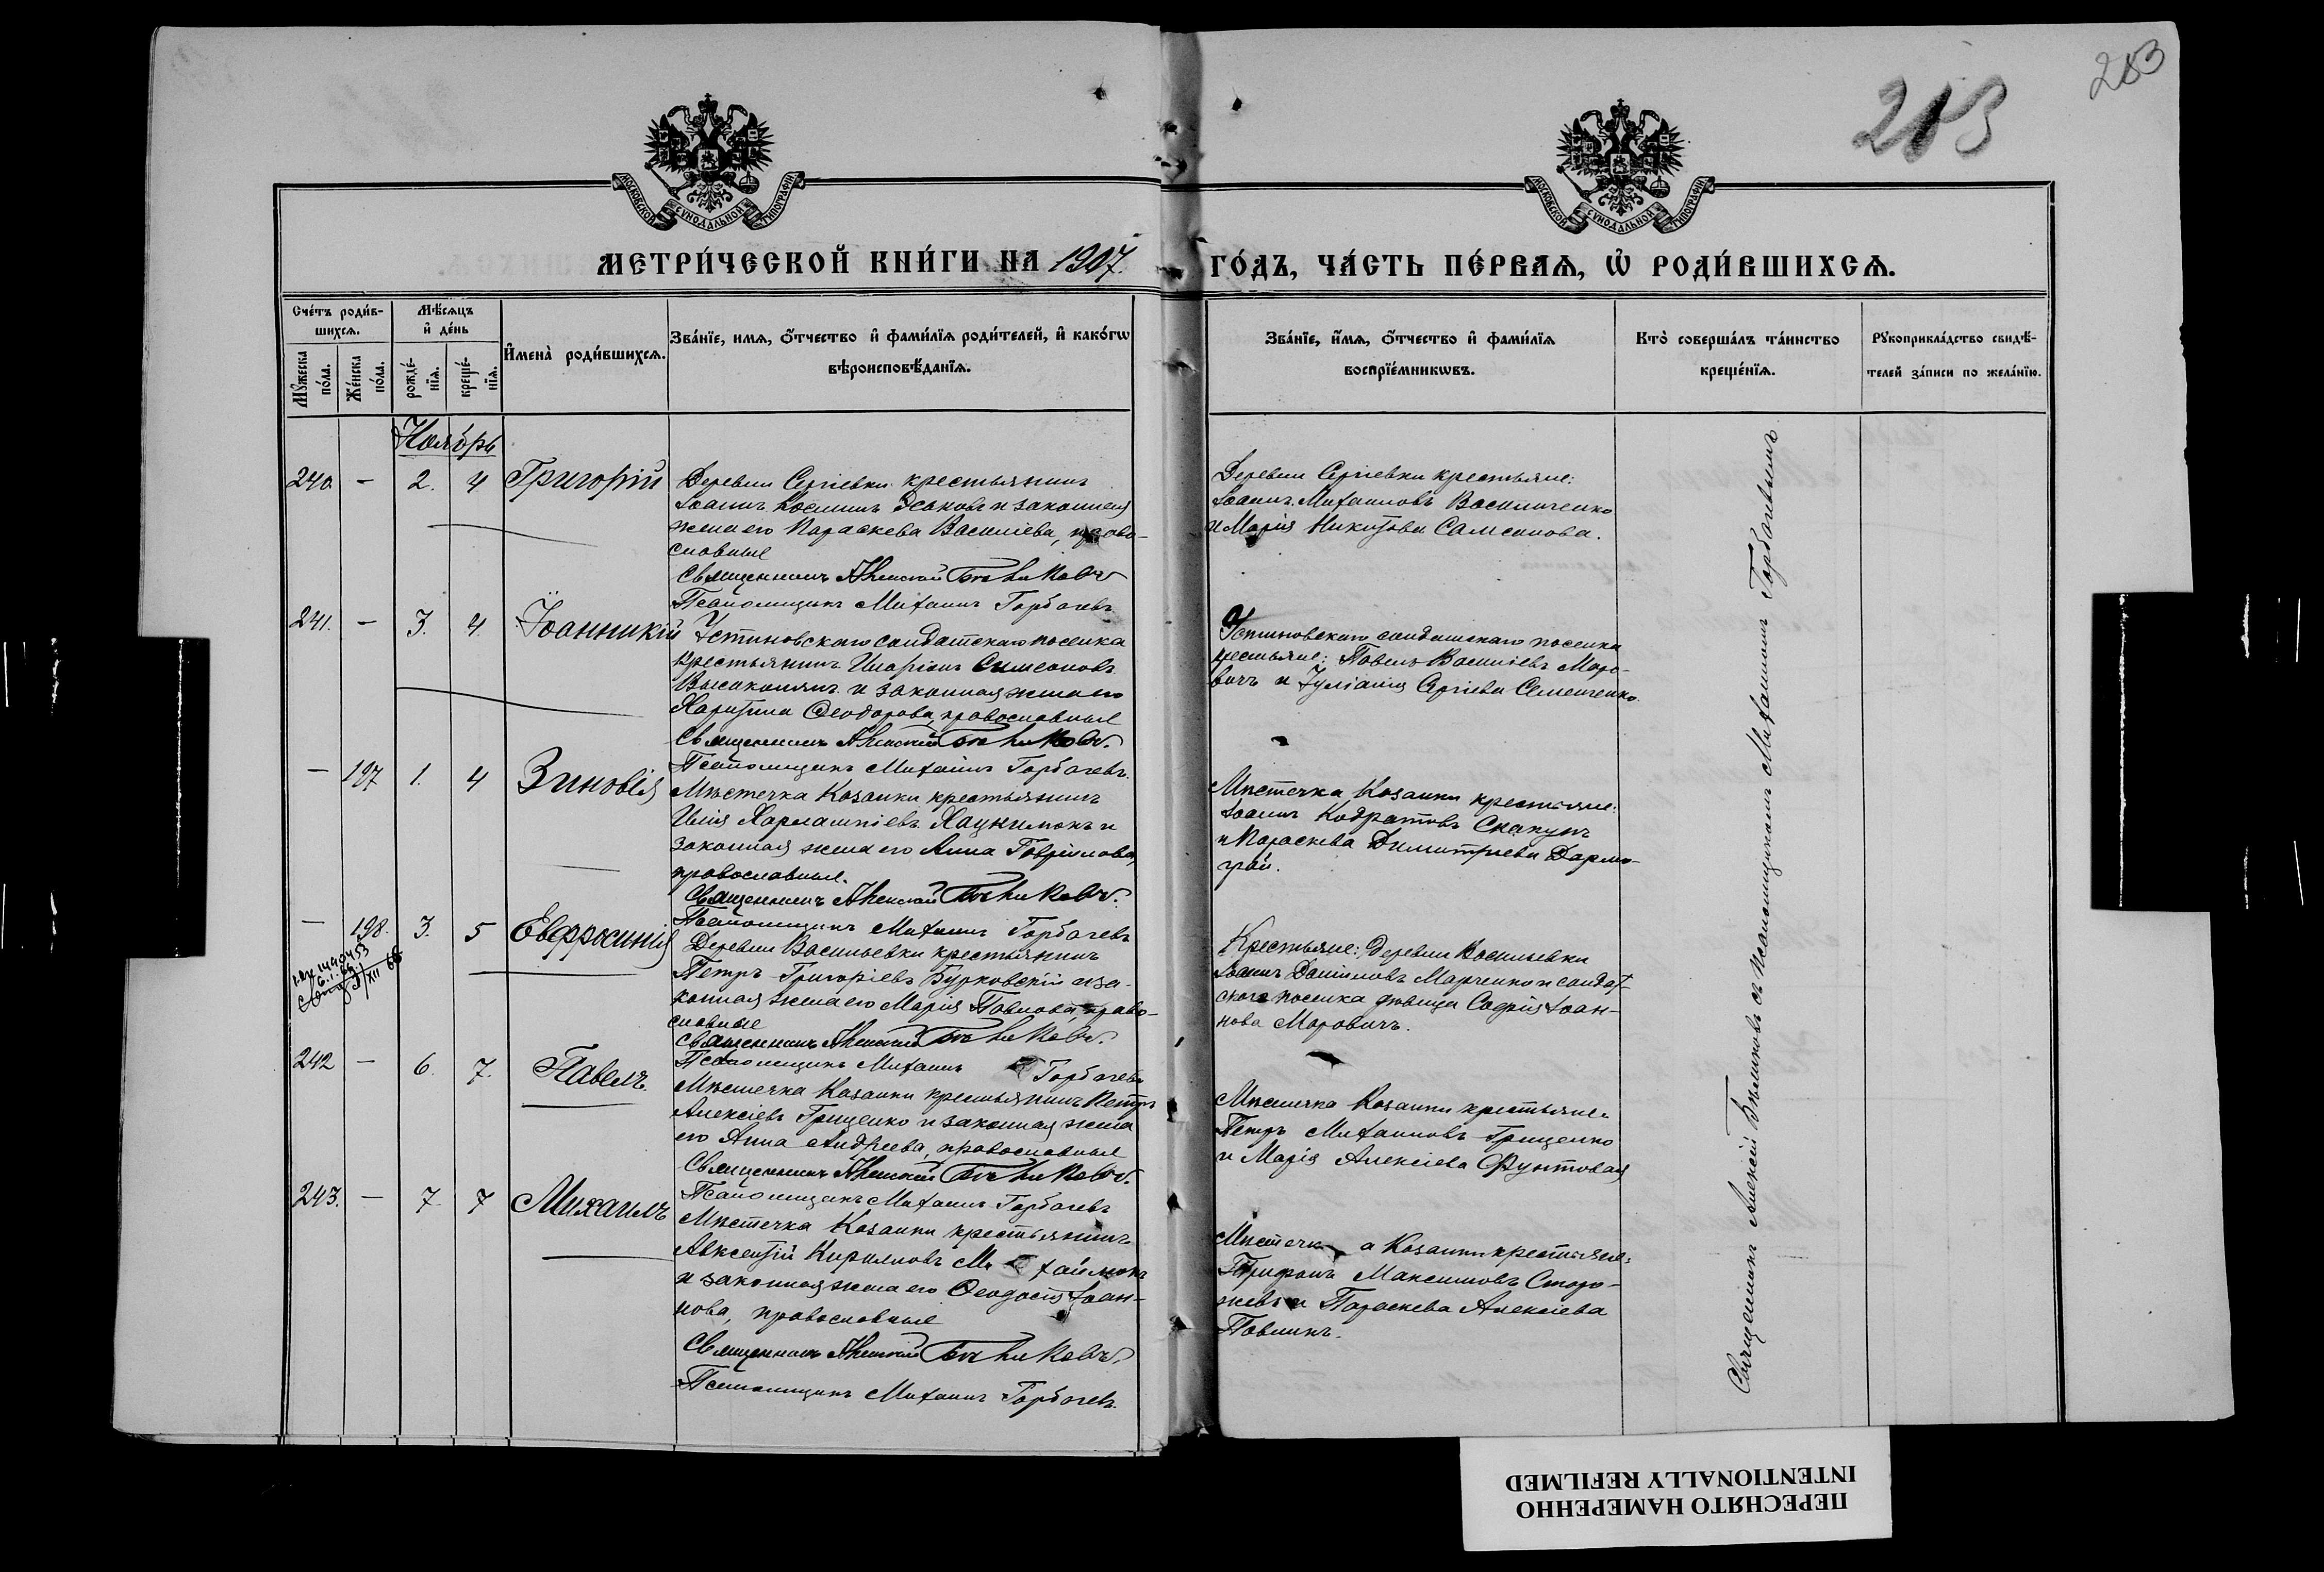 283
213
МОСКОВСКОЙ СѴНОДАЛЬНОЙ ТИПОГРАФІИ
МОСКОВСКОЙ СѴНОДАЛЬНОЙ ТИПОГРАФІИ
МЕТРИ́ЧЕСКОЙ КНИ́ГИ НА 1907. ГО́ДЪ, ЧА́СТЬ ПЕ́РВАѦ, Ѡ РОДИ́ВШИХСѦ.
Сче́тъ роди́в-
шихсѧ.
Мꙋ́жеска по́ла.
Же́нска по́ла.
Мѣ́сѧцъ
и҆ де́нь
рожде́-
нїѧ.
креще́-
нїѧ.
И҆мена̀ роди́вшихсѧ.
Зва́нїе, имѧ, ѻ҆́тчество и҆ фами́лїѧ роди́телей, и҆ како́гѡ
вѣроисповѣ́данїѧ.
Зва́нїе, и҆́мѧ, ѻ҆́тчество и҆ фами́лїѧ
воспрїе́мникѡвъ.
Кто̀ соверша́лъ та́инство
креще́нїѧ.
Рꙋкоприкла́дство свидѣ́-
телей за́писи по жела́нїю.
Ноябрь
240. — 2. 4 Григорій
Деревни Сергіевки крестьянинъ
Іоаннъ Косминъ и законная
жена его Параскева Василіева, право-
славные
Священникъ Алексій Бѣликовъ
Псаломщикъ Михаилъ Горбачевъ
Деревни Сергіевки крестьяне:
Іоаннъ Михаиловъ Василиченко
и Марія Никитова Самсонова.
241. — 3. 4. Іоанникій
Устиновскаго солдатскаго поселка
крестьянинъ Иларіонъ Симеоновъ
и законная жена его
Харитина Ѳеодорова, православные
Священникъ Алексій Бѣликовъ.
Псаломщикъ Михаилъ Горбачевъ.
Устиновскаго солдатскаго поселка
крестьяне: Павелъ Василіевъ Маро-
вичъ и Іуліанія Сергіева Семенченко.
— 197 1. 4 Зиновія
Мѣстечка Козанки крестьянинъ
Илія Харлампіевъ и
законная жена его Анна Гавріилова,
православные.
Священникъ Алексій Бѣликовъ.
Псаломщикъ Михаилъ Горбачевъ
Мѣстечка Козанки крестьяне:
Іоаннъ Кодратовъ Скакунъ
и Параскева Димитріева Дармо-
грай.
— 198. 3. 5 Евфросинія
Деревни Васильевки крестьянинъ
Петръ Григоріевъ Бурковскій и за-
конная жена его Марія Павлова, право-
славные
Священникъ Алексій Бѣликовъ.
Псаломщикъ Михаилъ Горбачевъ
Крестьяне: деревни Васильевки
Іоаннъ Даніиловъ Марченко и солдат-
скаго поселка дѣвица Софія Іоан-
нова Маровичъ.
242 — 6. 7. Павелъ.
Мѣстечка Козанки крестьянинъ Петръ
Алексіевъ Гриценко и законная жена
его Анна Андреева, православные
Священникъ Алексій Бѣликовъ.
Псаломщикъ Михаилъ Горбачевъ
Мѣстечка Козанки крестьяне:
Петръ Михаиловъ Гриценко
и Марія Алексіева Фунтовая
243. — 7 7 Михаилъ
Мѣстечка Козанки крестьянинъ
Авксентій Кирилловъ
и законная жена его Ѳеодосія Іоан-
нова, православные
Священникъ Алексій Бѣликовъ.
Псаломщикъ Михаилъ Горбачевъ.
Мѣстечка Козанки крестьяне:
Трифонъ Максимовъ Сторо-
жевъ и Параскева Алексіева
Павликъ.
Священникъ Алексій Бѣликовъ съ псаломщикомъ Михаиломъ Горбачевымъ
ПЕРЕСНЯТО НАМЕРЕННО
INTENTIONALLY REFILMED